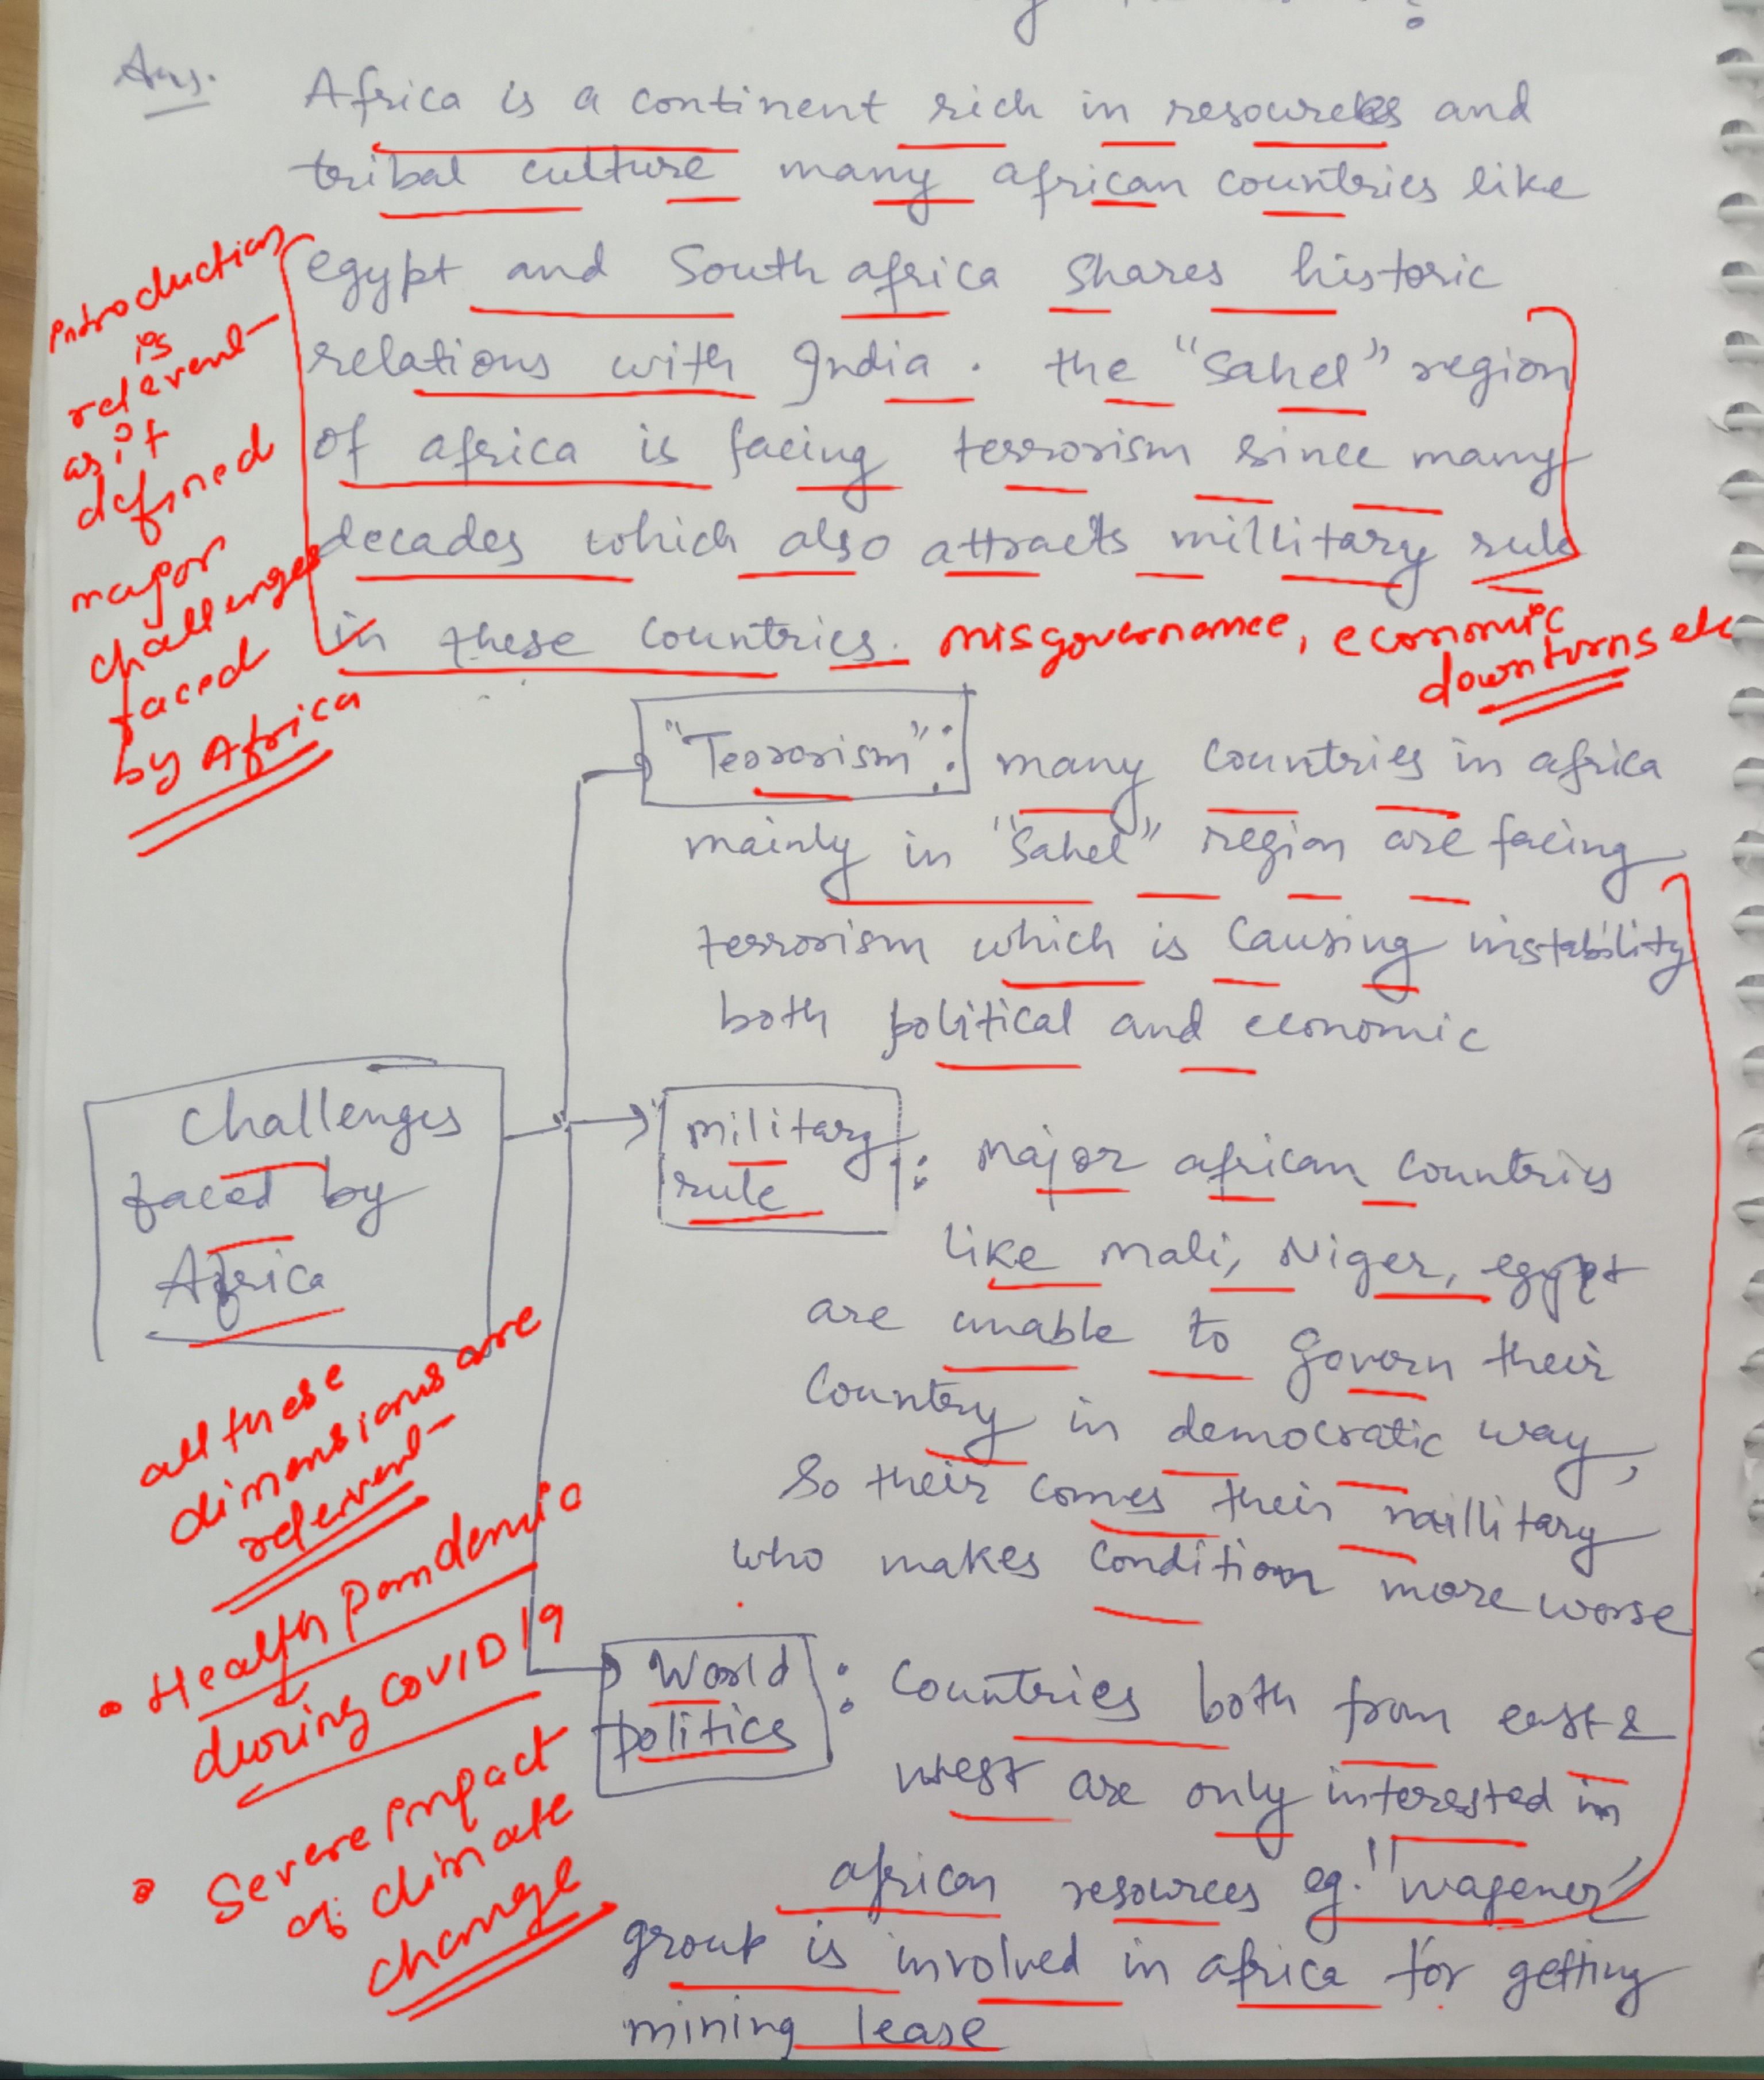 Ans. Africa is a continent rich in resources and
tribal culture many african countries like
egypt and South africa shares historic
relations with India. the "Sahel" region
of africa is facing terrorism since many
decades which also attracts millitary rule
in these countries. misgovernance, economic
downturns etc
Introduction
is
relevent
as it
defined
major
challenges
faced
by Africa
"Terrorism": many countries in africa
mainly in "Sahel" region are facing
terrorism which is causing instability
both political and economic
Challenges
faced by
Africa
military
rule : major african countries
like mali, Niger, egypt
are unable to govern their
Country in democratic way,
So their comes their millitary
who makes condition more worse
all these
dimensions are
relevent
• Health pandemic
during COVID 19
• Severe impact
of climate
change
World
politics : Countries both from east &
west are only interested in
african resources eg. "wagener"
group is involved in africa for getting
mining lease